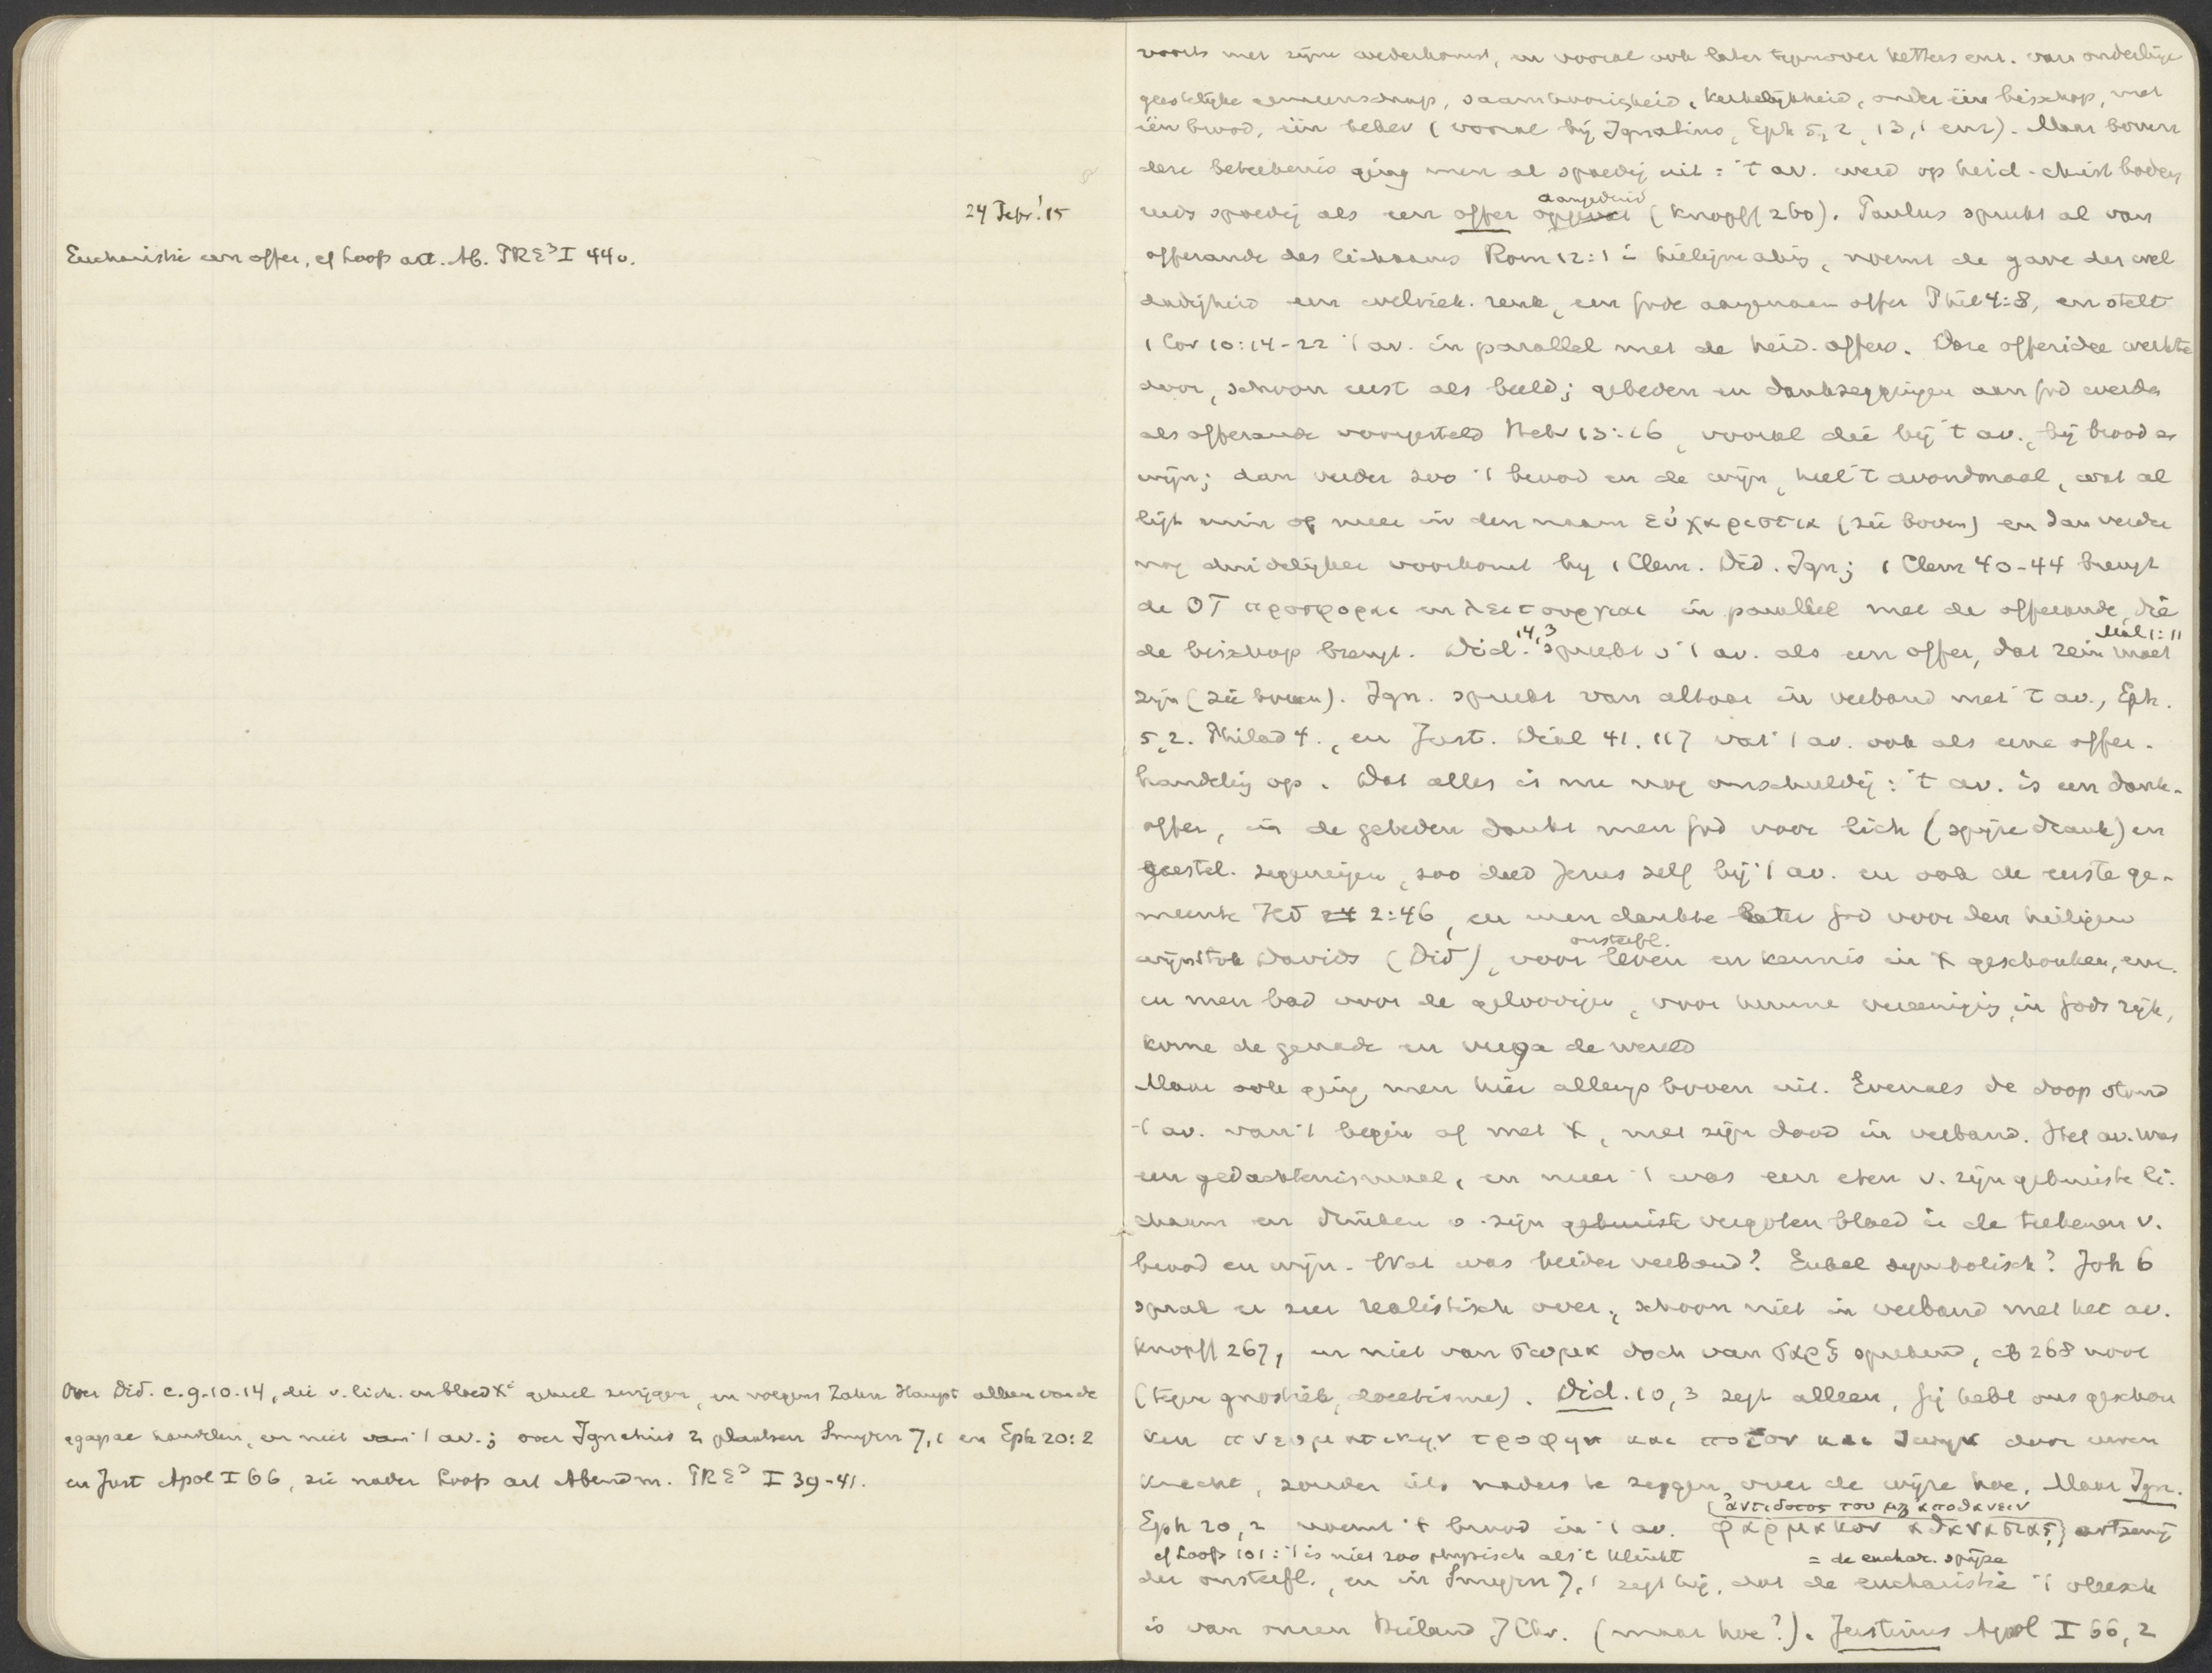 24 Febr. '15
Eucharistie een offer, cf Loofs art. Ab. PRE³ I 44v.
Over Did. c. 9.10.14, die v. lich. en bloed Xi geheel zwijgen, en volgens Zahn Haupt alleen van de
agapae handelen, en niet van 't av.; over Ignatius 2 plaatsen Smyrn 7,1 en Eph 20:2
en Just Apol I 66, zie nader Loofs art Abendm. PRE³ I 39-41.
voorts met zijne wederkomst, en vooral ook later tegenover ketters enz. van onderlinge
geestelijke gemeenschap, saamhoorigheid, kerkelijkheid, onder één bisschop, met
één brood, één beker (vooral bij Ignatius, Eph 5,2, 13,1 enz). Maar boven
deze beteekenis ging men al spoedig uit: 't av. werd op heid-christ bodem
reeds spoedig als een offer opgevat aangeduid (Knopff 260). Paulus spreekt al van
offerande des lichaams Rom 12:1 = heiligmaking, noemt de gave der wel
dadigheid een welriek. reuk, een Gode aangenaam offer Phil 4:8, en stelt
1 Cor 10:14-22 't av. in parallel met de heid. offers. Deze offeridee werkte
door, schoon eerst als beeld; gebeden en dankzeggingen aan God werden
als offerande voorgesteld Hebr 13:16, vooral die bij 't av., bij brood en
wijn; dan verder zoo 't brood en de wijn, heel 't avondmaal, wat al
ligt min of meer in den naam εὐχαριστια (zie boven) en dan verder
nog duidelijker voorkomt by 1 Clem. Did. Ign; 1 Clem 40-44 brengt
de OT προσφοραι en λειτουργιαι in parallel met de offerande, die
de bisschop brengt. Did. 14,3 spreekt v 't av. als een offer, dat rein moet Mal 1:11
zijn (zie boven). Ign. spreekt van altaar in verband met 't av., Eph.
5,2. Philad 4., en Just. Dial 41. 117 vat 't av. ook als eene offer-
handeling op. Dat alles is nu nog onschuldig: 't av. is een dank-
offer, in de gebeden dankt men God voor lich (spijze drank) en
geestel. zegeningen, zoo deed Jezus zelf bij 't av. en ook de eerste ge-
meente Hd 24 2:46, en men dankte later God voor den heiligen
wijnstok Davids (Did), voor onsterfl. leven en kennis in X geschonken, enz.
en men bad voor de geloovigen, voor hunne vereeniging in Gods rijk,
kome de genade en verga de wereld
Maar ook ging men hier allengs boven uit. Evenals de doop stond
't av. van 't begin af met X, met zijn dood in verband. Het av. was
een gedachtenismaal, en meer 't was een eten v. zijn gekruiste li-
chaam en drinken v. zijn gekruiste vergoten bloed in de teekenen v.
brood en wijn. Wat was beider verband? Enkel symbolisch? Joh 6
sprak er zeer realistisch over, schoon niet in verband met het av.
Knopff 267, en niet van σωμα doch van σαρξ sprekend, cf 268 noot
(tegen gnostiek, docetisme). Did. 10,3 zegt alleen, Gij hebt ons geschon
ken πνευματικην τροφην και ποτον και ζωην door uwen
knecht, zonder iets naders te zeggen over de wijze hoe. Maar Ign.
Eph 20,2 noemt 't brood in 't av. φαρμακον αθανασιας, (ἀντιδοτος του μη αποθανειν) artsenij
cf Loofs 101: 't is niet zoo physisch als 't klinkt = de euchar. spijze
der onsterfl., en in Smyrn 7,1 zegt hij, dat de eucharistie 't vleesch
is van onzen Heiland J Chr. (maar hoe?). Justinus Apol I 66,2